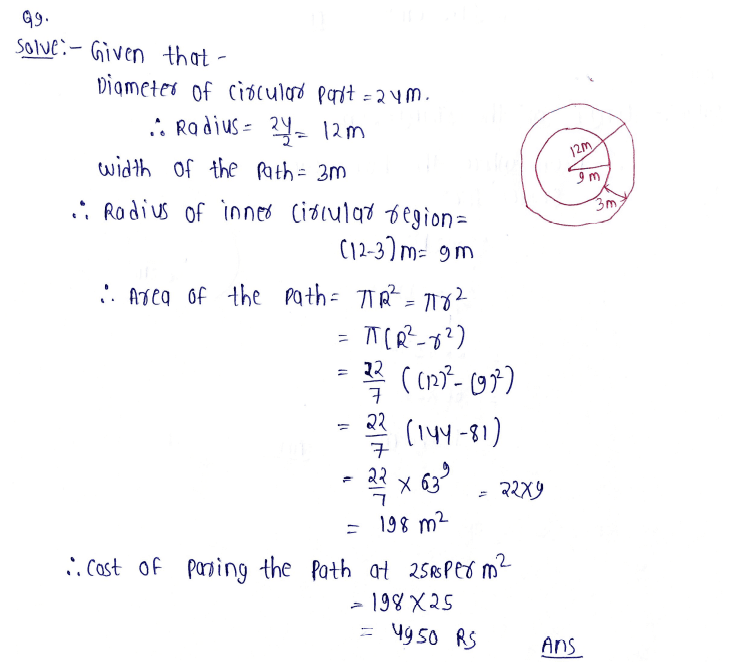 Q9.
Solve:- Given that -
Diameter of circular part = 24m.
∴ Radius = 24/2 = 12m
width of the Path = 3m
∴ Radius of inner circular region =
(12-3)m = 9m
12m
9m
3m
∴ Area of the path = πR² = πr²
= π(R²-r²)
= 22/7 ((12)²-(9)²)
= 22/7 (144-81)
= 22/7 × 63 9 = 22×9
= 198 m²
∴ Cost of paving the Path at 25Rs Per m²
= 198×25
= 4950 RS Ans